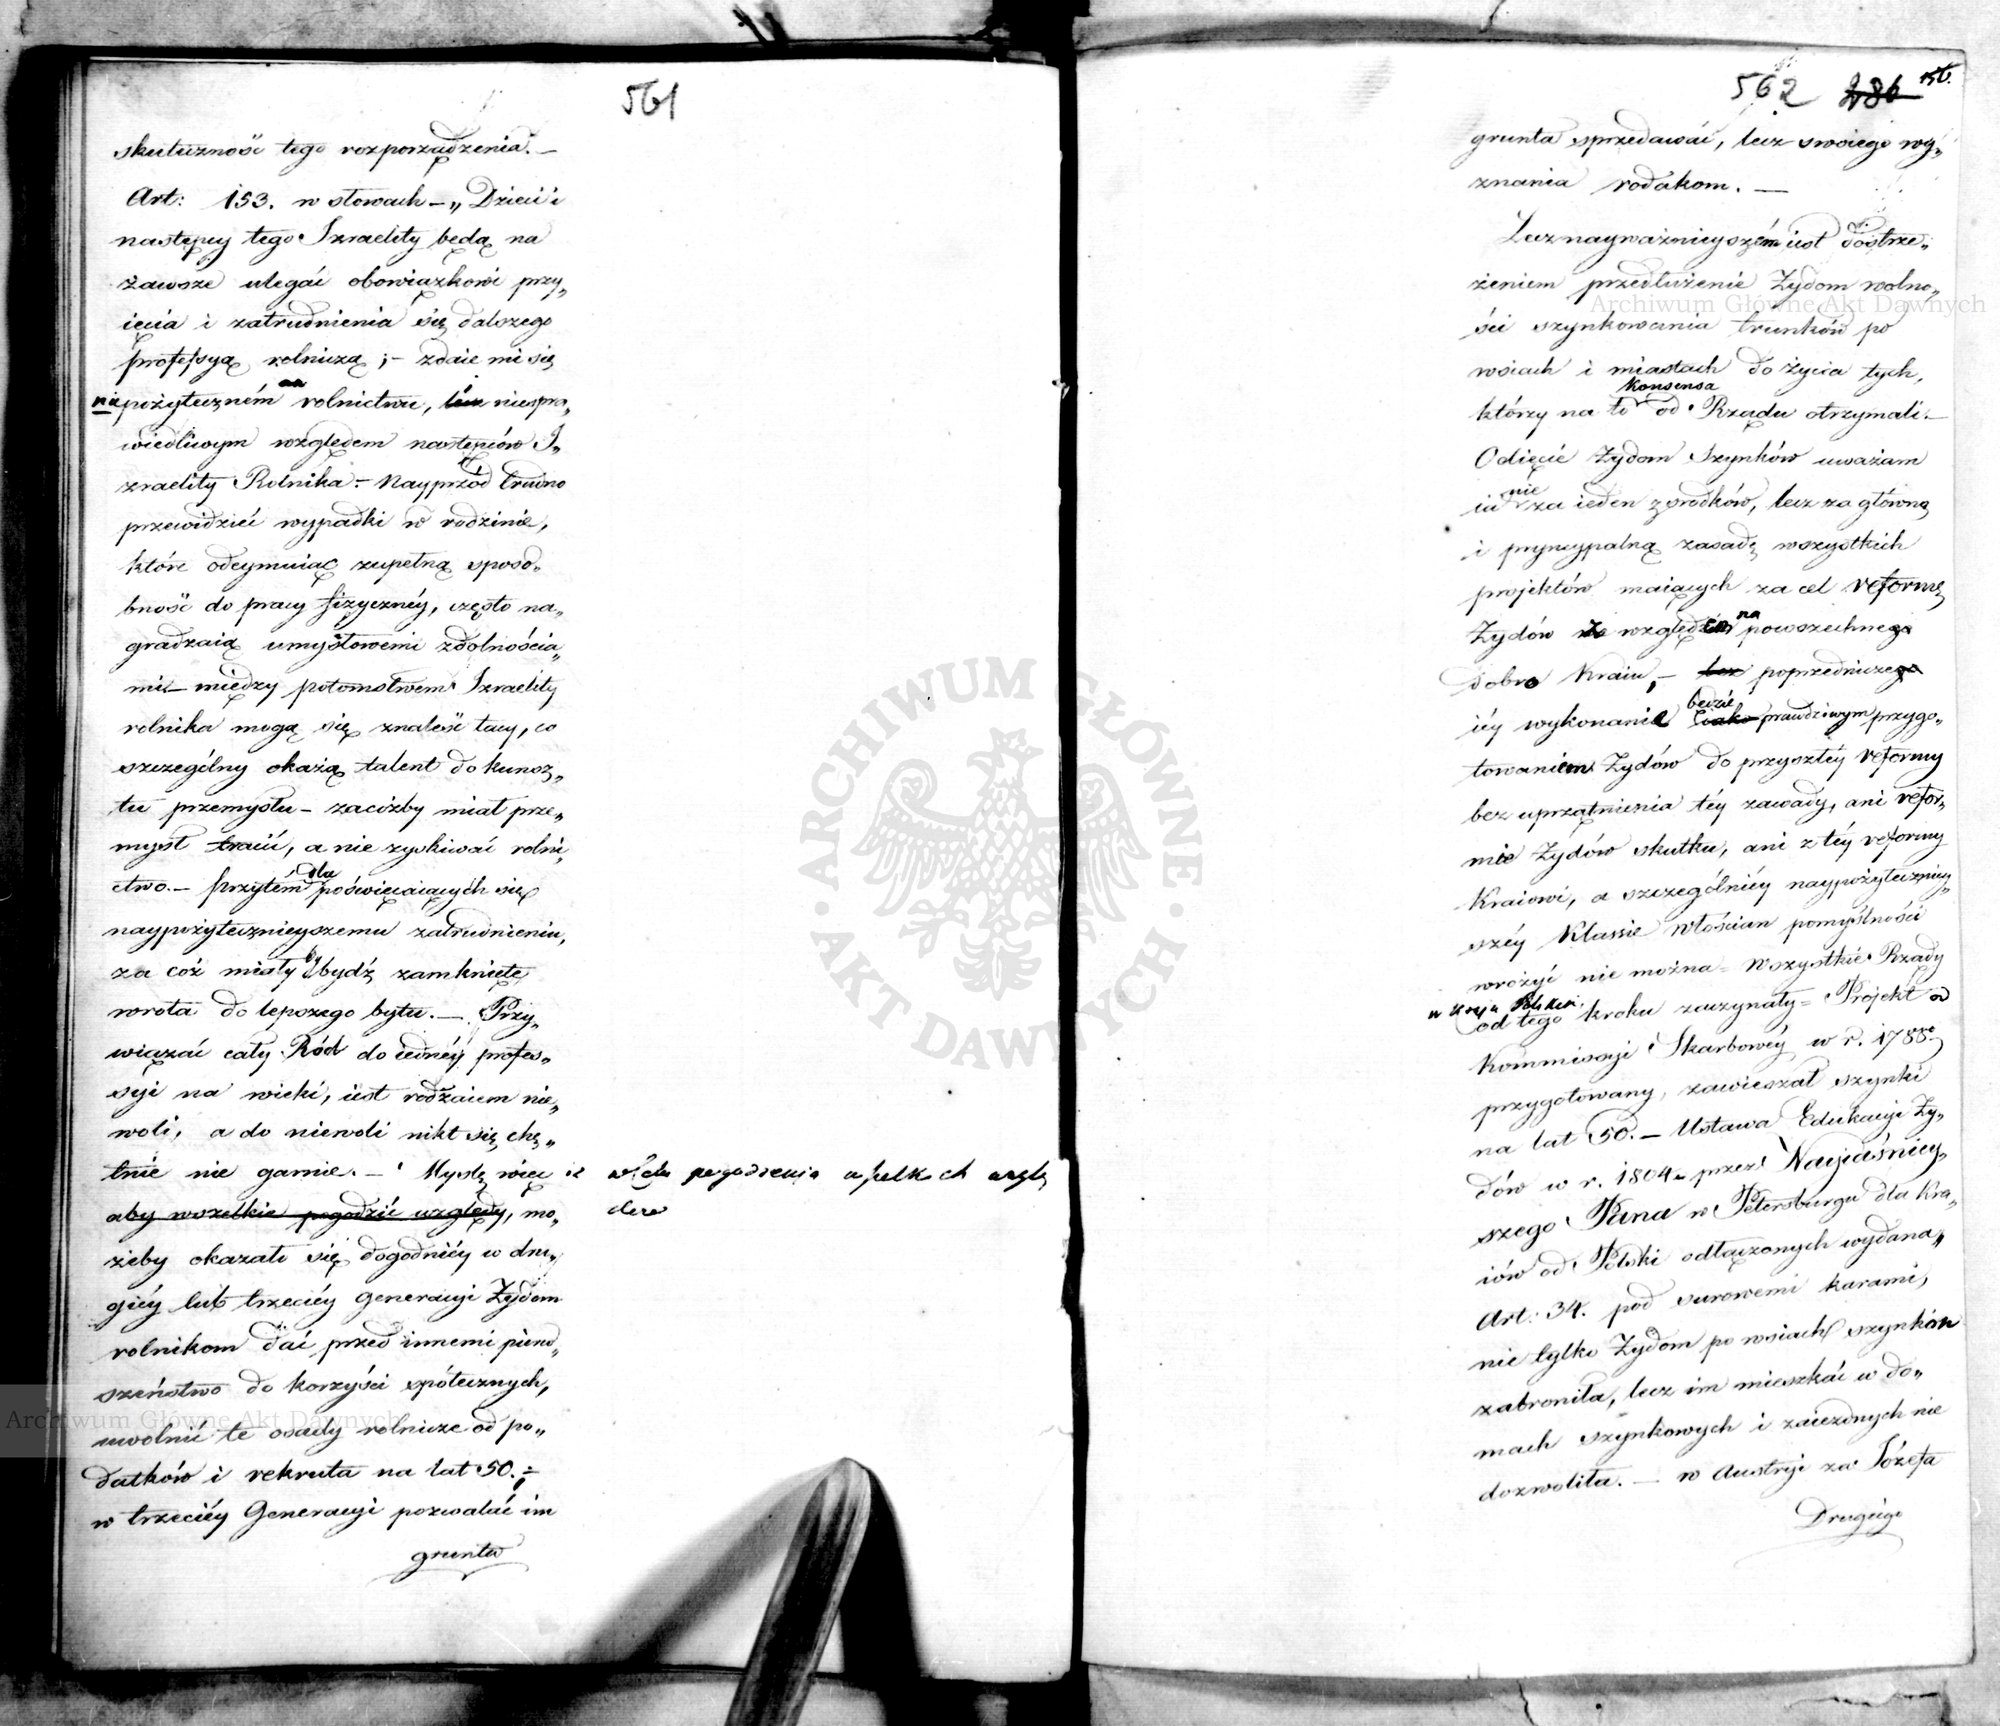 561
skuteczność tego rozporządzenia. —
Art: 153. w słowach – „Dzieci i
następcy tego Izraelity będą na
zawsze ulegać obowiązkowi przy„
ięcia i zatrudnienia się dalszego
professyą rolniczą; – zdaie mi się
niepożyteczném rolnictwu, niespra„
wiedliwym względem następców I„
zraelity Rolnika. – Nayprzód trudno
przewidzieć wypadki w rodzinie,
które odeymuiąc zupełną sposo„
bność do pracy fizycznéy, często na„
gradzaią umysłowemi zdolnościa„
mi – między potomstwem Izraelity
rolnika mogą się znaleść tacy, co
szczególny okażą talent do kunsz„
tu przemysłu – zacóżby miał prze„
mysł tracić, a nie zyskiwać rolni„
ctwo. – przytém dla poświęcaiących się
naypożytecznieyszemu zatrudnieniu,
za cóż miały by bydź zamknięte
wrota do lepszego bytu. — Przy„
wiązać cały Ród do iednéy profes„
syi na wieki, iest rodzaiem nie„
woli, a do niewoli nikt się chę„
tnie nie garnie. — Myślę więc iż w celu pogodzenia wszelkich wzglę
aby wszelkie pogodzić względy, mo„ dów
żeby okazało się dogodniéy w dru„
giéy lub trzeciéy Generacyi Żydom
rolnikom dać przed innemi pierw„
szeństwo do korzyści spółecznych,
uwolnić te osady rolnicze od po„
datków i rekruta na lat 50. –
w trzeciéy Generacyi pozwalać im
grunta
562 286 156.
grunta sprzedawać, lecz swoiego wy„
znania rodakom. —
Lecz nayważnieyszém iest dostrze„
żeniem przedłużenie Żydom wolno„
ści szynkowania trunków po
wsiach i miastach do życia tych,
którzy na to konsensa od Rządu otrzymali. –
Odięcie Żydom Szynków uważam
ia nie za ieden z środków, lecz za główną
i pryncypalną zasadę wszystkich
projektów maiących za cel reformę
Żydów ze względem na powszechnego
dobro Kraiu, – lecz poprzedniczego
iéy wykonanie będzie iako prawdziwym przygo„
towaniem Żydów do przyszłéy reformy
bez uprzątnienia téy zawady, ani refor„
mie Żydów skutku, ani z téy reformy
Kraiowi, a szczególniéy naypożyteczniey„
széy Klassie włościan pomyślności
wrożyć nie można – Wszystkie Rządy
w kraju Polskim
od tego kroku zaczynały – Projekt od
Kommissyi Skarbowéy w r. 1788.
przygotowany, zawieszał szynki
na lat 50. – Ustawa Edukacyi Ży„
dów w r. 1804 przez Nayiaśniey„
szego Pana w Petersburgu dla Kra„
iów od Polski odłączonych wydana„
Art: 34. pod surowemi karami,
nie tylko Żydom po wsiach szynków
zabroniła, lecz im mieszkać w do„
mach szynkowych i zaiezdnych nie
dozwoliła. — w Austryi za Józefa
Drugiego
Archiwum Główne Akt Dawnych
Archiwum Główne Akt Dawnych
ARCHIWUM GŁÓWNE · AKT DAWNYCH ·